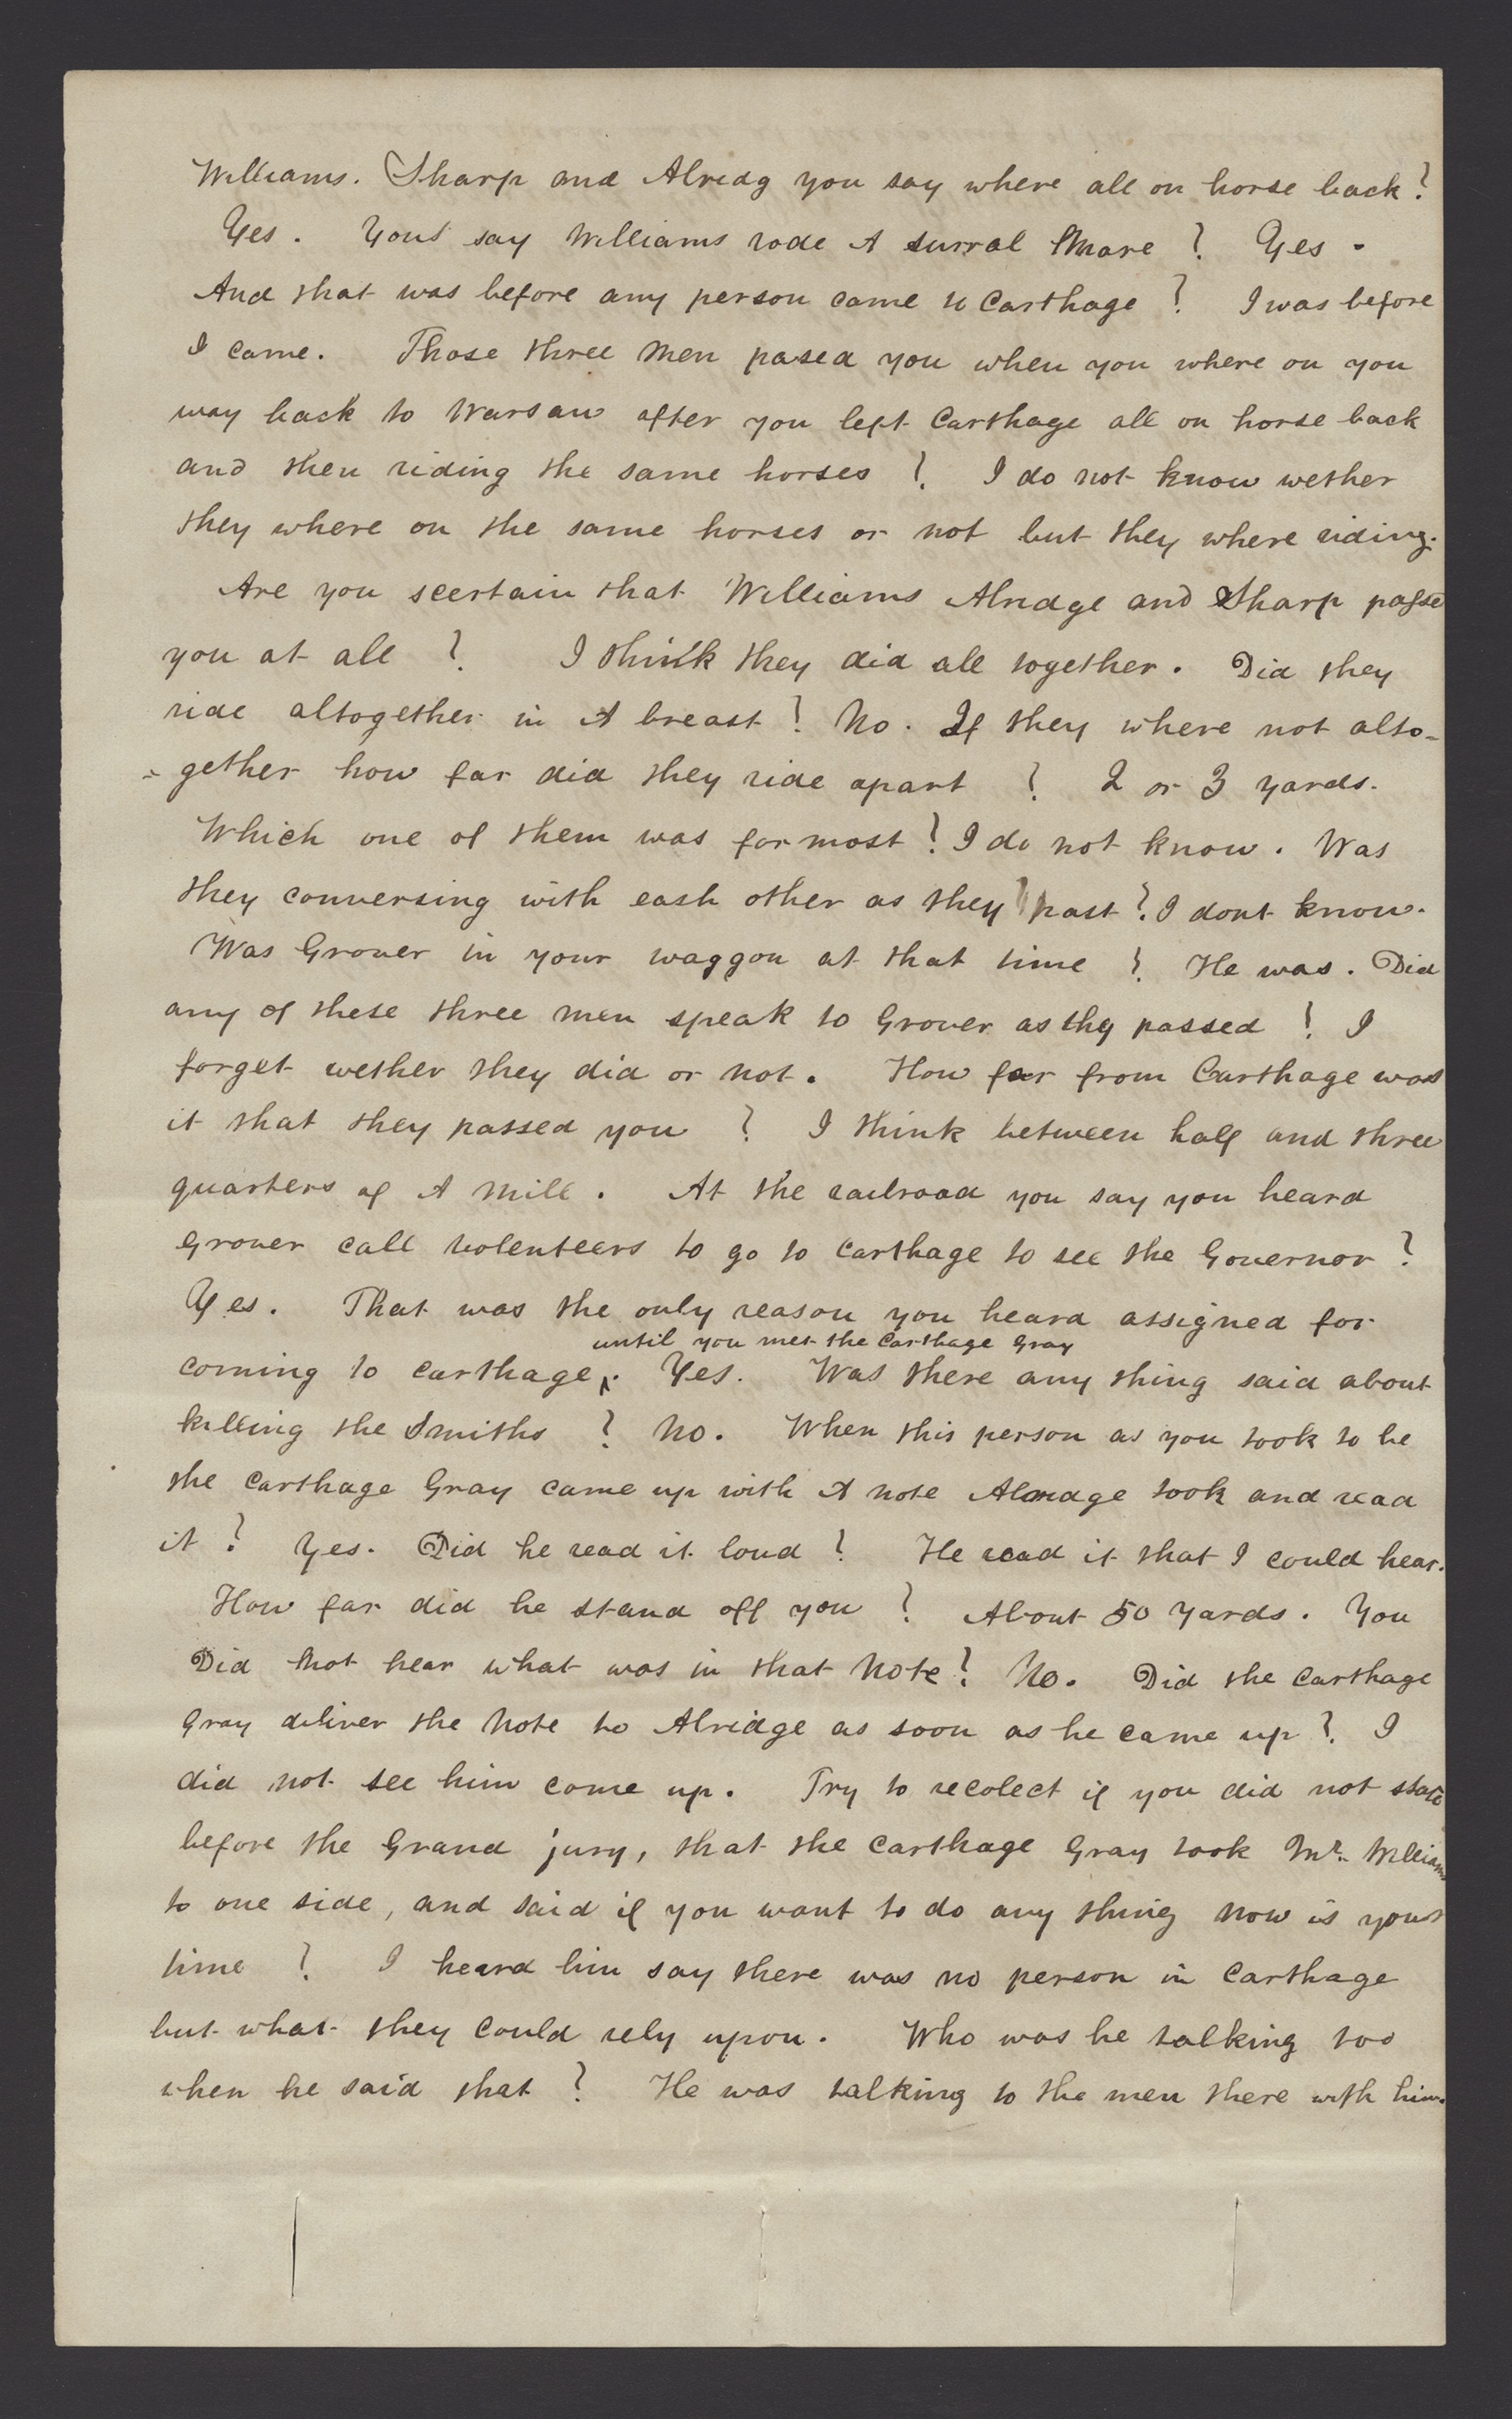 Williams. Sharp and Alredg you say where all on horse back?
Yes. You say Williams rode A surral Mare? Yes.
And that was before any person came to Carthage? I was before
I came. Those three Men pased you when you where on you
way back to Warsaw after you left Carthage all on horse back
and then riding the same horses? I do not know wether
they where on the same horses or not but they where riding.
Are you scertain that Williams Alredge and Sharp passe
you at all? I think they did all together. Did they
ride altogether in A breast? No. If they where not alto-
-gether how far did they ride apart? 2 or 3 yards.
Which one of them was formost? I do not know. Was
they conversing with eash other as they past? I dont know.
Was Grover in your waggon at that time? He was. Did
any of these three men speak to Grover as thy passed? I
forget wether they did or not. How far from Carthage was
it that they passed you? I think between half and three
quarters of A Mile. At the railroad you say you heard
Grover call volenteers to go to Carthage to see the Governor?
Yes. That was the only reason you heard assigned for
until you met the Carthage Gray
coming to Carthage^. Yes. Was there any thing said about
killing the Smiths? No. When this person as you took to be
the Carthage Gray came up with A note Alredge took and read
it? Yes. Did he read it loud? He read it that I could hear.
How far did he stand off you? About 50 Yards. You
Did Not hear what was in that Note? No. Did the Carthage
Gray deliver the Note to Alridge as soon as he came up? I
did not see him come up. Try to recolect if you did not state
before the Grand jury, that the Carthage Gray took Mr. Williams
to one side, and said if you want to do any thing Now is your
time? I heard him say there was no person in Carthage
but what they could rely upon. Who was he talking too
when he said that? He was talking to the men there with him.